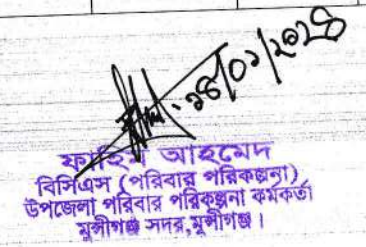 ১৪/০১/২০২৪
ফাহিম আহমেদ
বিসিএস (পরিবার পরিকল্পনা)
উপজেলা পরিবার পরিকল্পনা কর্মকর্তা
মুন্সীগঞ্জ সদর, মুন্সীগঞ্জ।